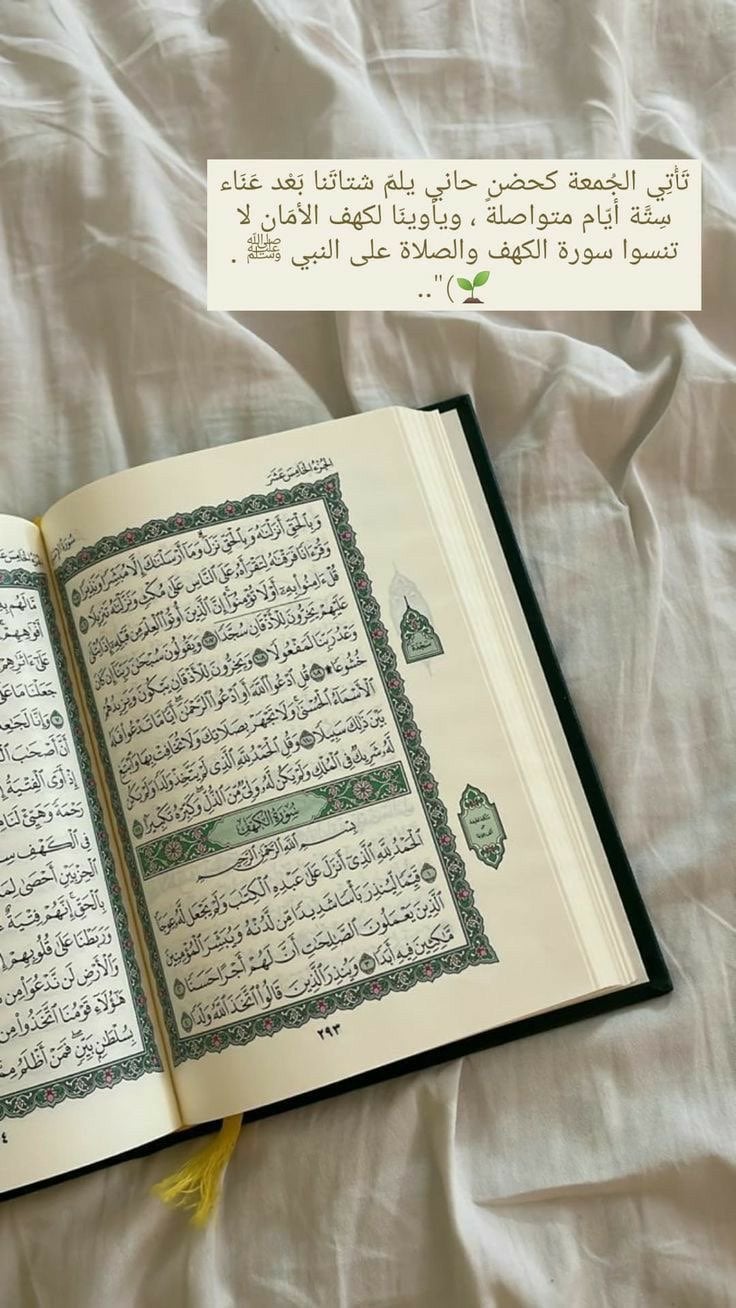 تَأْتِي الجُمعة كحضنٍ حاني يلمّ شتاتَنا بَعْد عَنَاء
سِتَّة أيّام متواصلةً ، ويأوينَا لكهف الأمَان لا
تنسوا سورة الكهف والصلاة على النبي ﷺ .
🌱)"..
الجُزْءُ الخَامِسَ عَشَرَ
وَبِٱلْحَقِّ أَنزَلْنَٰهُ وَبِٱلْحَقِّ نَزَلَ وَمَآ أَرْسَلْنَٰكَ إِلَّا مُبَشِّرًا وَنَذِيرًا
وَقُرْءَانًا فَرَقْنَٰهُ لِتَقْرَأَهُۥ عَلَى ٱلنَّاسِ عَلَىٰ مُكْثٍ وَنَزَّلْنَٰهُ تَنزِيلًا
قُلْ ءَامِنُوا۟ بِهِۦٓ أَوْ لَا تُؤْمِنُوٓا۟ إِنَّ ٱلَّذِينَ أُوتُوا۟ ٱلْعِلْمَ مِن قَبْلِهِۦٓ إِذَا يُتْلَىٰ
عَلَيْهِمْ يَخِرُّونَ لِلْأَذْقَانِ سُجَّدًا ١٠٧ وَيَقُولُونَ سُبْحَٰنَ رَبِّنَآ إِن كَانَ
وَعْدُ رَبِّنَا لَمَفْعُولًا ١٠٨ وَيَخِرُّونَ لِلْأَذْقَانِ يَبْكُونَ وَيَزِيدُهُمْ
خُشُوعًا ۩ قُلِ ٱدْعُوا۟ ٱللَّهَ أَوِ ٱدْعُوا۟ ٱلرَّحْمَٰنَ أَيًّا مَّا تَدْعُوا۟ فَلَهُ
ٱلْأَسْمَآءُ ٱلْحُسْنَىٰ وَلَا تَجْهَرْ بِصَلَاتِكَ وَلَا تُخَافِتْ بِهَا وَٱبْتَغِ
بَيْنَ ذَٰلِكَ سَبِيلًا ١١٠ وَقُلِ ٱلْحَمْدُ لِلَّهِ ٱلَّذِى لَمْ يَتَّخِذْ وَلَدًا وَلَمْ يَكُن
لَّهُۥ شَرِيكٌ فِى ٱلْمُلْكِ وَلَمْ يَكُن لَّهُۥ وَلِىٌّ مِّنَ ٱلذُّلِّ وَكَبِّرْهُ تَكْبِيرًا
سُورَةُ الكَهْفِ
بِسْمِ ٱللَّهِ ٱلرَّحْمَٰنِ ٱلرَّحِيمِ
ٱلْحَمْدُ لِلَّهِ ٱلَّذِىٓ أَنزَلَ عَلَىٰ عَبْدِهِ ٱلْكِتَٰبَ وَلَمْ يَجْعَل لَّهُۥ عِوَجَا
قَيِّمًا لِّيُنذِرَ بَأْسًا شَدِيدًا مِّن لَّدُنْهُ وَيُبَشِّرَ ٱلْمُؤْمِنِينَ
ٱلَّذِينَ يَعْمَلُونَ ٱلصَّٰلِحَٰتِ أَنَّ لَهُمْ أَجْرًا حَسَنًا
مَّٰكِثِينَ فِيهِ أَبَدًا وَيُنذِرَ ٱلَّذِينَ قَالُوا۟ ٱتَّخَذَ ٱللَّهُ وَلَدًا
٢٩٣
سَجْدَة
مَّا لَهُم بِهِ
أَفْوَٰهِهِمْ
عَلَىٰٓ ءَاثَٰرِهِمْ
جَعَلْنَا مَا عَلَى
وَإِنَّا لَجَٰعِلُونَ
أَنَّ أَصْحَٰبَ
إِذْ أَوَى ٱلْفِتْيَةُ
رَحْمَةً وَهَيِّئْ لَنَا
فِى ٱلْكَهْفِ
ٱلْحِزْبَيْنِ أَحْصَىٰ
بِٱلْحَقِّ إِنَّهُمْ فِتْيَةٌ
وَرَبَطْنَا عَلَىٰ قُلُوبِهِمْ
وَٱلْأَرْضِ لَن نَّدْعُوَا۟ مِن
هَٰٓؤُلَآءِ قَوْمُنَا ٱتَّخَذُوا۟ مِن
بِسُلْطَٰنٍۭ بَيِّنٍ فَمَنْ أَظْلَمُ